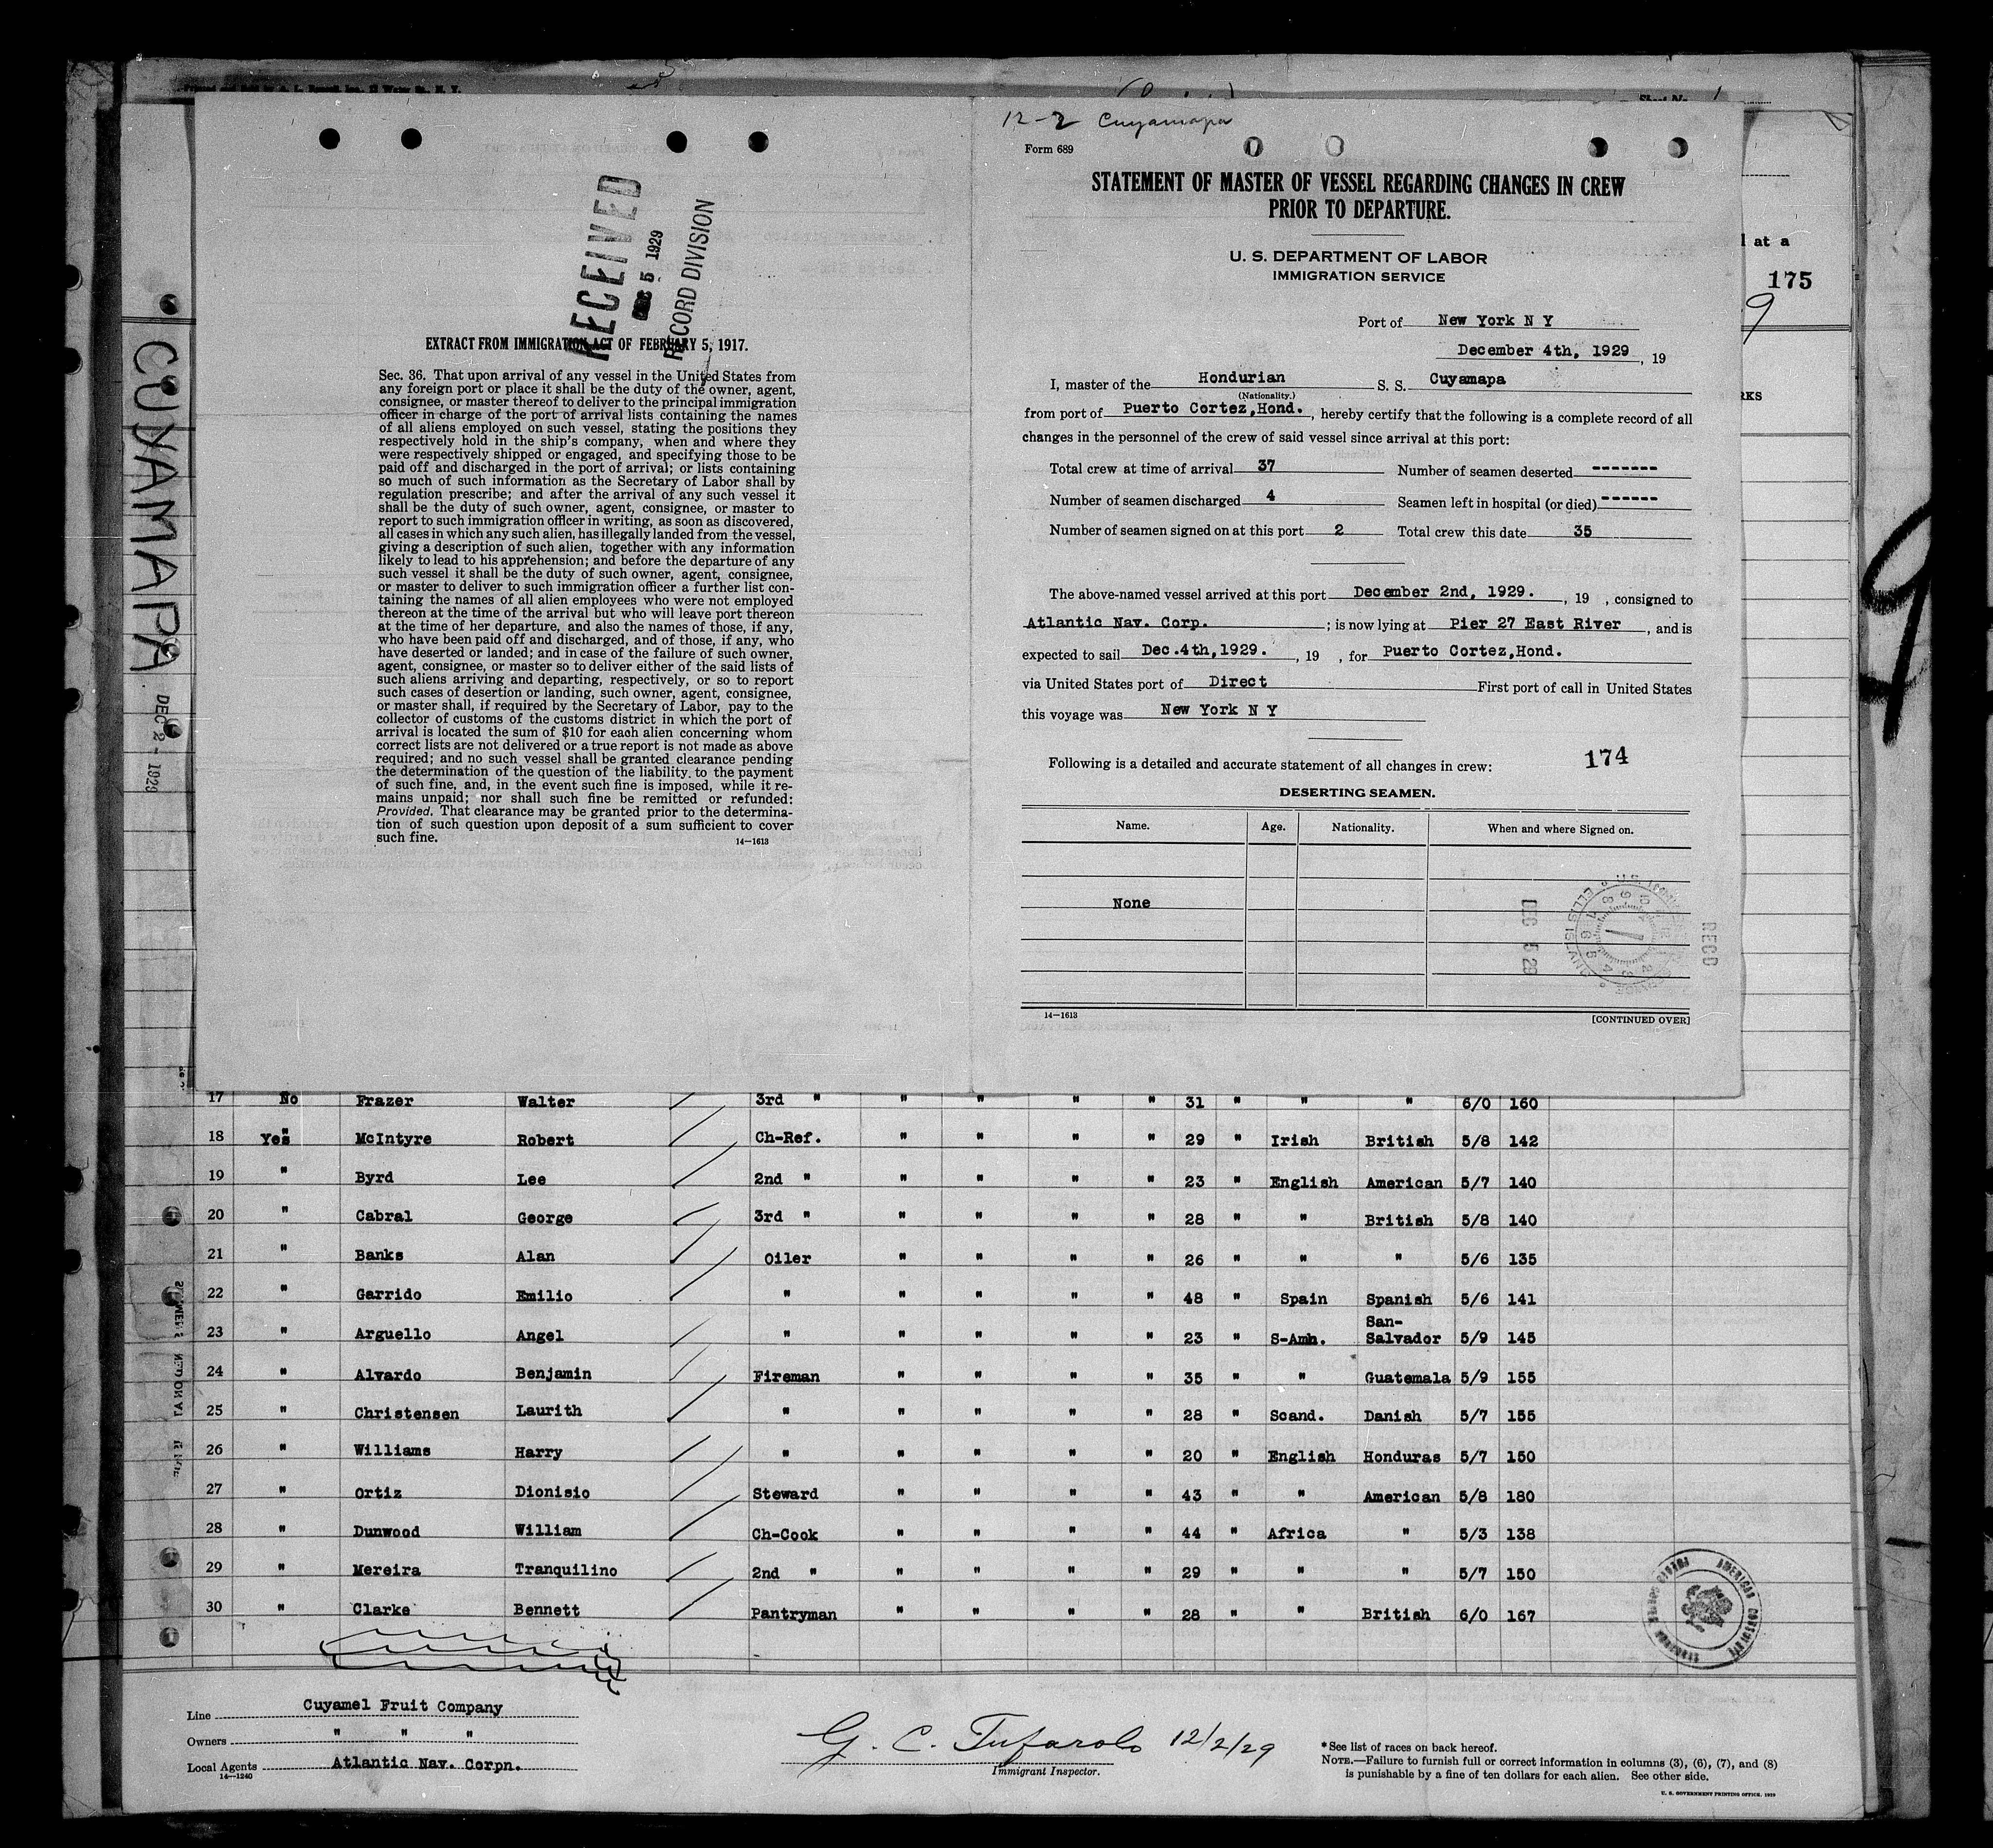 Printed and Sold by
Sheet No. 1
12-2 Cuyamapa
Form 689
STATEMENT OF MASTER OF VESSEL REGARDING CHANGES IN CREW
PRIOR TO DEPARTURE.
U. S. DEPARTMENT OF LABOR
IMMIGRATION SERVICE
Port of New York N Y
December 4th, 1929, 19
I, master of the Hondurian S. S. Cuyamapa
(Nationality.)
from port of Puerto Cortez,Hond., hereby certify that the following is a complete record of all
changes in the personnel of the crew of said vessel since arrival at this port:
Total crew at time of arrival 37 Number of seamen deserted -------
Number of seamen discharged 4 Seamen left in hospital (or died) ------
Number of seamen signed on at this port 2 Total crew this date 35
The above-named vessel arrived at this port December 2nd, 1929. , 19 , consigned to
Atlantic Nav. Corp. ; is now lying at Pier 27 East River , and is
expected to sail Dec.4th,1929. , 19 , for Puerto Cortez,Hond.
via United States port of Direct First port of call in United States
this voyage was New York N Y
Following is a detailed and accurate statement of all changes in crew: 174
DESERTING SEAMEN.
Name. Age. Nationality. When and where Signed on.
None
DEC 5 29
RECD
14—1613
[CONTINUED OVER]
RECEIVED
DEC 5 1929
RECORD DIVISION
EXTRACT FROM IMMIGRATION ACT OF FEBRUARY 5, 1917.
Sec. 36. That upon arrival of any vessel in the United States from
any foreign port or place it shall be the duty of the owner, agent,
consignee, or master thereof to deliver to the principal immigration
officer in charge of the port of arrival lists containing the names
of all aliens employed on such vessel, stating the positions they
respectively hold in the ship's company, when and where they
were respectively shipped or engaged, and specifying those to be
paid off and discharged in the port of arrival; or lists containing
so much of such information as the Secretary of Labor shall by
regulation prescribe; and after the arrival of any such vessel it
shall be the duty of such owner, agent, consignee, or master to
report to such immigration officer in writing, as soon as discovered,
all cases in which any such alien, has illegally landed from the vessel,
giving a description of such alien, together with any information
likely to lead to his apprehension; and before the departure of any
such vessel it shall be the duty of such owner, agent, consignee,
or master to deliver to such immigration officer a further list con-
taining the names of all alien employees who were not employed
thereon at the time of the arrival but who will leave port thereon
at the time of her departure, and also the names of those, if any,
who have been paid off and discharged, and of those, if any, who
have deserted or landed; and in case of the failure of such owner,
agent, consignee, or master so to deliver either of the said lists of
such aliens arriving and departing, respectively, or so to report
such cases of desertion or landing, such owner, agent, consignee,
or master shall, if required by the Secretary of Labor, pay to the
collector of customs of the customs district in which the port of
arrival is located the sum of $10 for each alien concerning whom
correct lists are not delivered or a true report is not made as above
required; and no such vessel shall be granted clearance pending
the determination of the question of the liability to the payment
of such fine, and, in the event such fine is imposed, while it re-
mains unpaid; nor shall such fine be remitted or refunded:
Provided, That clearance may be granted prior to the determina-
tion of such question upon deposit of a sum sufficient to cover
such fine.
14—1613
CUYAMAPA
DEC 2 - 1929
at a
175
9
RKS
17 No Frazer Walter 3rd " " " " " 31 " " " 6/0 160
18 Yes McIntyre Robert Ch-Ref. " " " " 29 " Irish British 5/8 142
19 " Byrd Lee 2nd " " " " " 23 " English American 5/7 140
20 " Cabral George 3rd " " " " " 28 " " British 5/8 140
21 " Banks Alan Oiler " " " " 26 " " " 5/6 135
22 " Garrido Emilio " " " " " 48 " Spain Spanish 5/6 141
23 " Arguello Angel " " " " " 23 " S-Amh. San-Salvador 5/9 145
24 " Alvardo Benjamin Fireman " " " " 35 " " Guatemala 5/9 155
25 " Christensen Laurith " " " " " 28 " Scand. Danish 5/7 155
26 " Williams Harry " " " " " 20 " English Honduras 5/7 150
27 " Ortiz Dionisio Steward " " " " 43 " " American 5/8 180
28 " Dunwood William Ch-Cook " " " " 44 " Africa " 5/3 138
29 " Mereira Tranquilino 2nd " " " " " 29 " " " 5/7 150
30 " Clarke Bennett Pantryman " " " " 28 " " British 6/0 167
Line Cuyamel Fruit Company
Owners " " "
Local Agents Atlantic Nav. Corpn.
14—1240
G. C. Tufarolo 12/2/29
Immigrant Inspector.
* See list of races on back hereof.
NOTE.—Failure to furnish full or correct information in columns (3), (6), (7), and (8)
is punishable by a fine of ten dollars for each alien. See other side.
U. S. GOVERNMENT PRINTING OFFICE. 1929